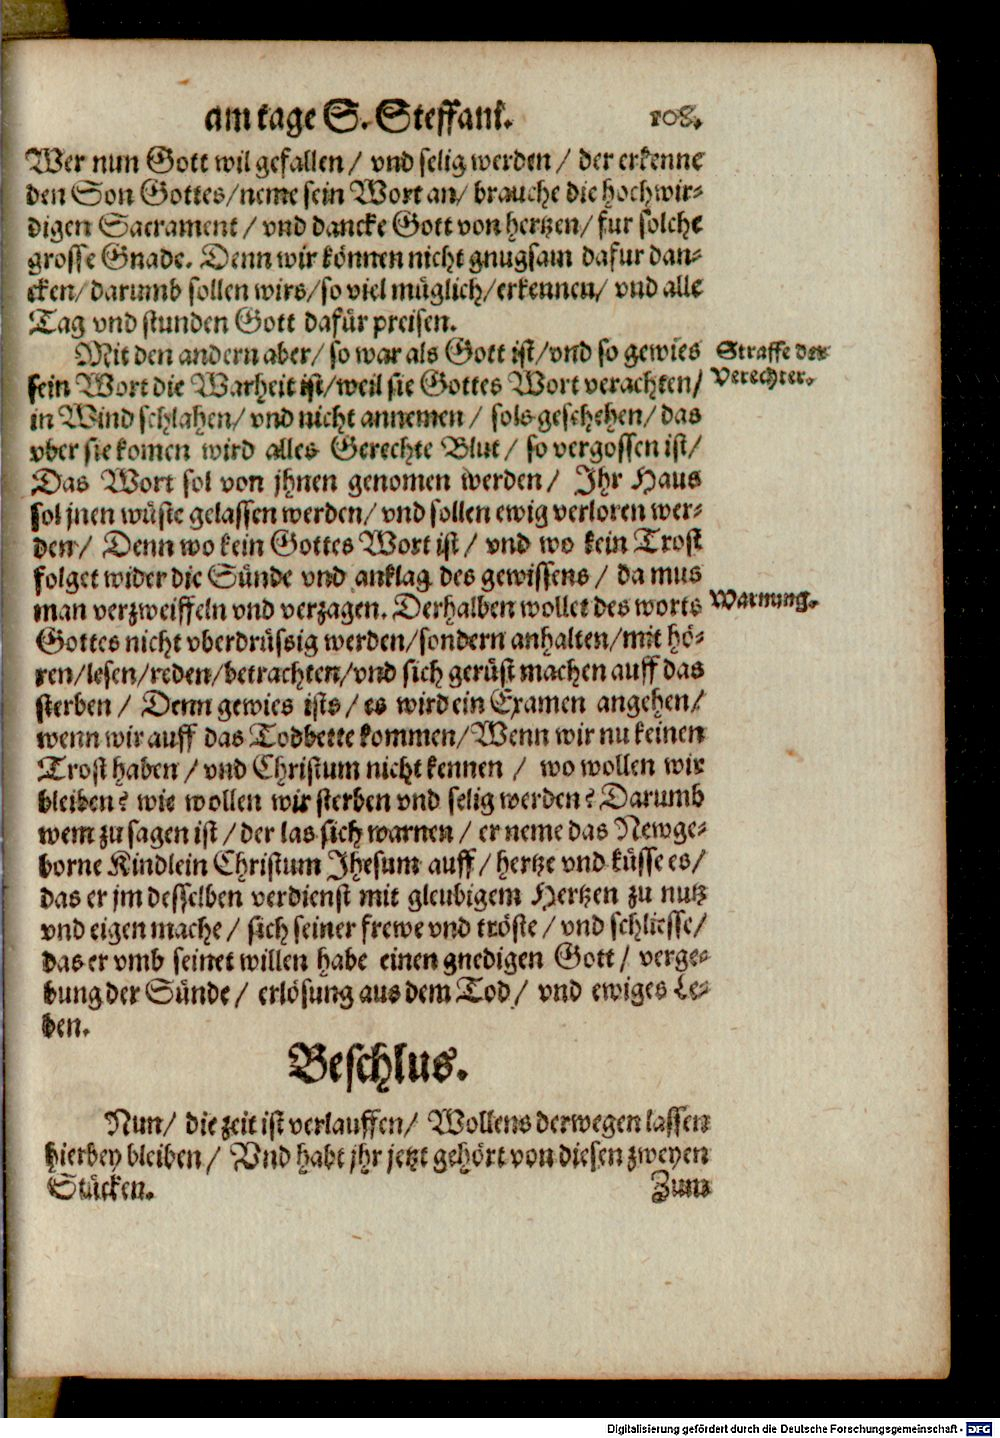 am tage S. Steffani.
108.
Wer nun Gott wil gefallen / vnd selig werden / der erkenne
den Son Gottes / neme sein Wort an / brauche die hochwir-
digen Sacrament / vnd dancke Gott von hertzen / fur solche
grosse Gnade. Denn wir können nicht gnugsam dafur dan-
cken / darumb sollen wirs / so viel müglich / erkennen / vnd alle
Tag vnd stunden Gott dafür preisen.
Mit den andern aber / so war als Gott ist / vnd so gewies
Straffe der
sein Wort die Warheit ist / weil sie Gottes Wort verachten /
Verechter.
in Wind schlahen / vnd nicht annemen / sols geschehen / das
vber sie komen wird alles Gerechte Blut / so vergossen ist /
Das Wort sol von jhnen genomen werden / Ihr Haus
sol jnen wüste gelassen werden / vnd sollen ewig verloren wer-
den / Denn wo kein Gottes Wort ist / vnd wo kein Trost
folget wider die Sünde vnd anklag des gewissens / da mus
man verzweiffeln vnd verzagen. Derhalben wollet des worts
Warnung.
Gottes nicht vberdrüssig werden / sondern anhalten / mit hö-
ren / lesen / reden / betrachten / vnd sich gerüst machen auff das
sterben / Denn gewies ists / es wird ein Examen angehen /
wenn wir auff das Todbette kommen / Wenn wir nu keinen
Trost haben / vnd Christum nicht kennen / wo wollen wir
bleiben? wie wollen wir sterben vnd selig werden? Darumb
wem zu sagen ist / der las sich warnen / er neme das Newge-
borne Kindlein Christum Jhesum auff / hertze vnd küsse es /
das er jm desselben verdienst mit gleubigem Hertzen zu nutz
vnd eigen mache / sich seiner frewe vnd tröste / vnd schliesse /
das er vmb seinet willen habe einen gnedigen Gott / verge-
bung der Sünde / erlösung aus dem Tod / vnd ewiges Le-
ben.
Beschlus.
Nun / die zeit ist verlauffen / Wollens derwegen lassen
hierbey bleiben / Vnd habt jhr jetzt gehört von diesen zweyen
Stücken.
Zum
Digitalisierung gefördert durch die Deutsche Forschungsgemeinschaft - DFG